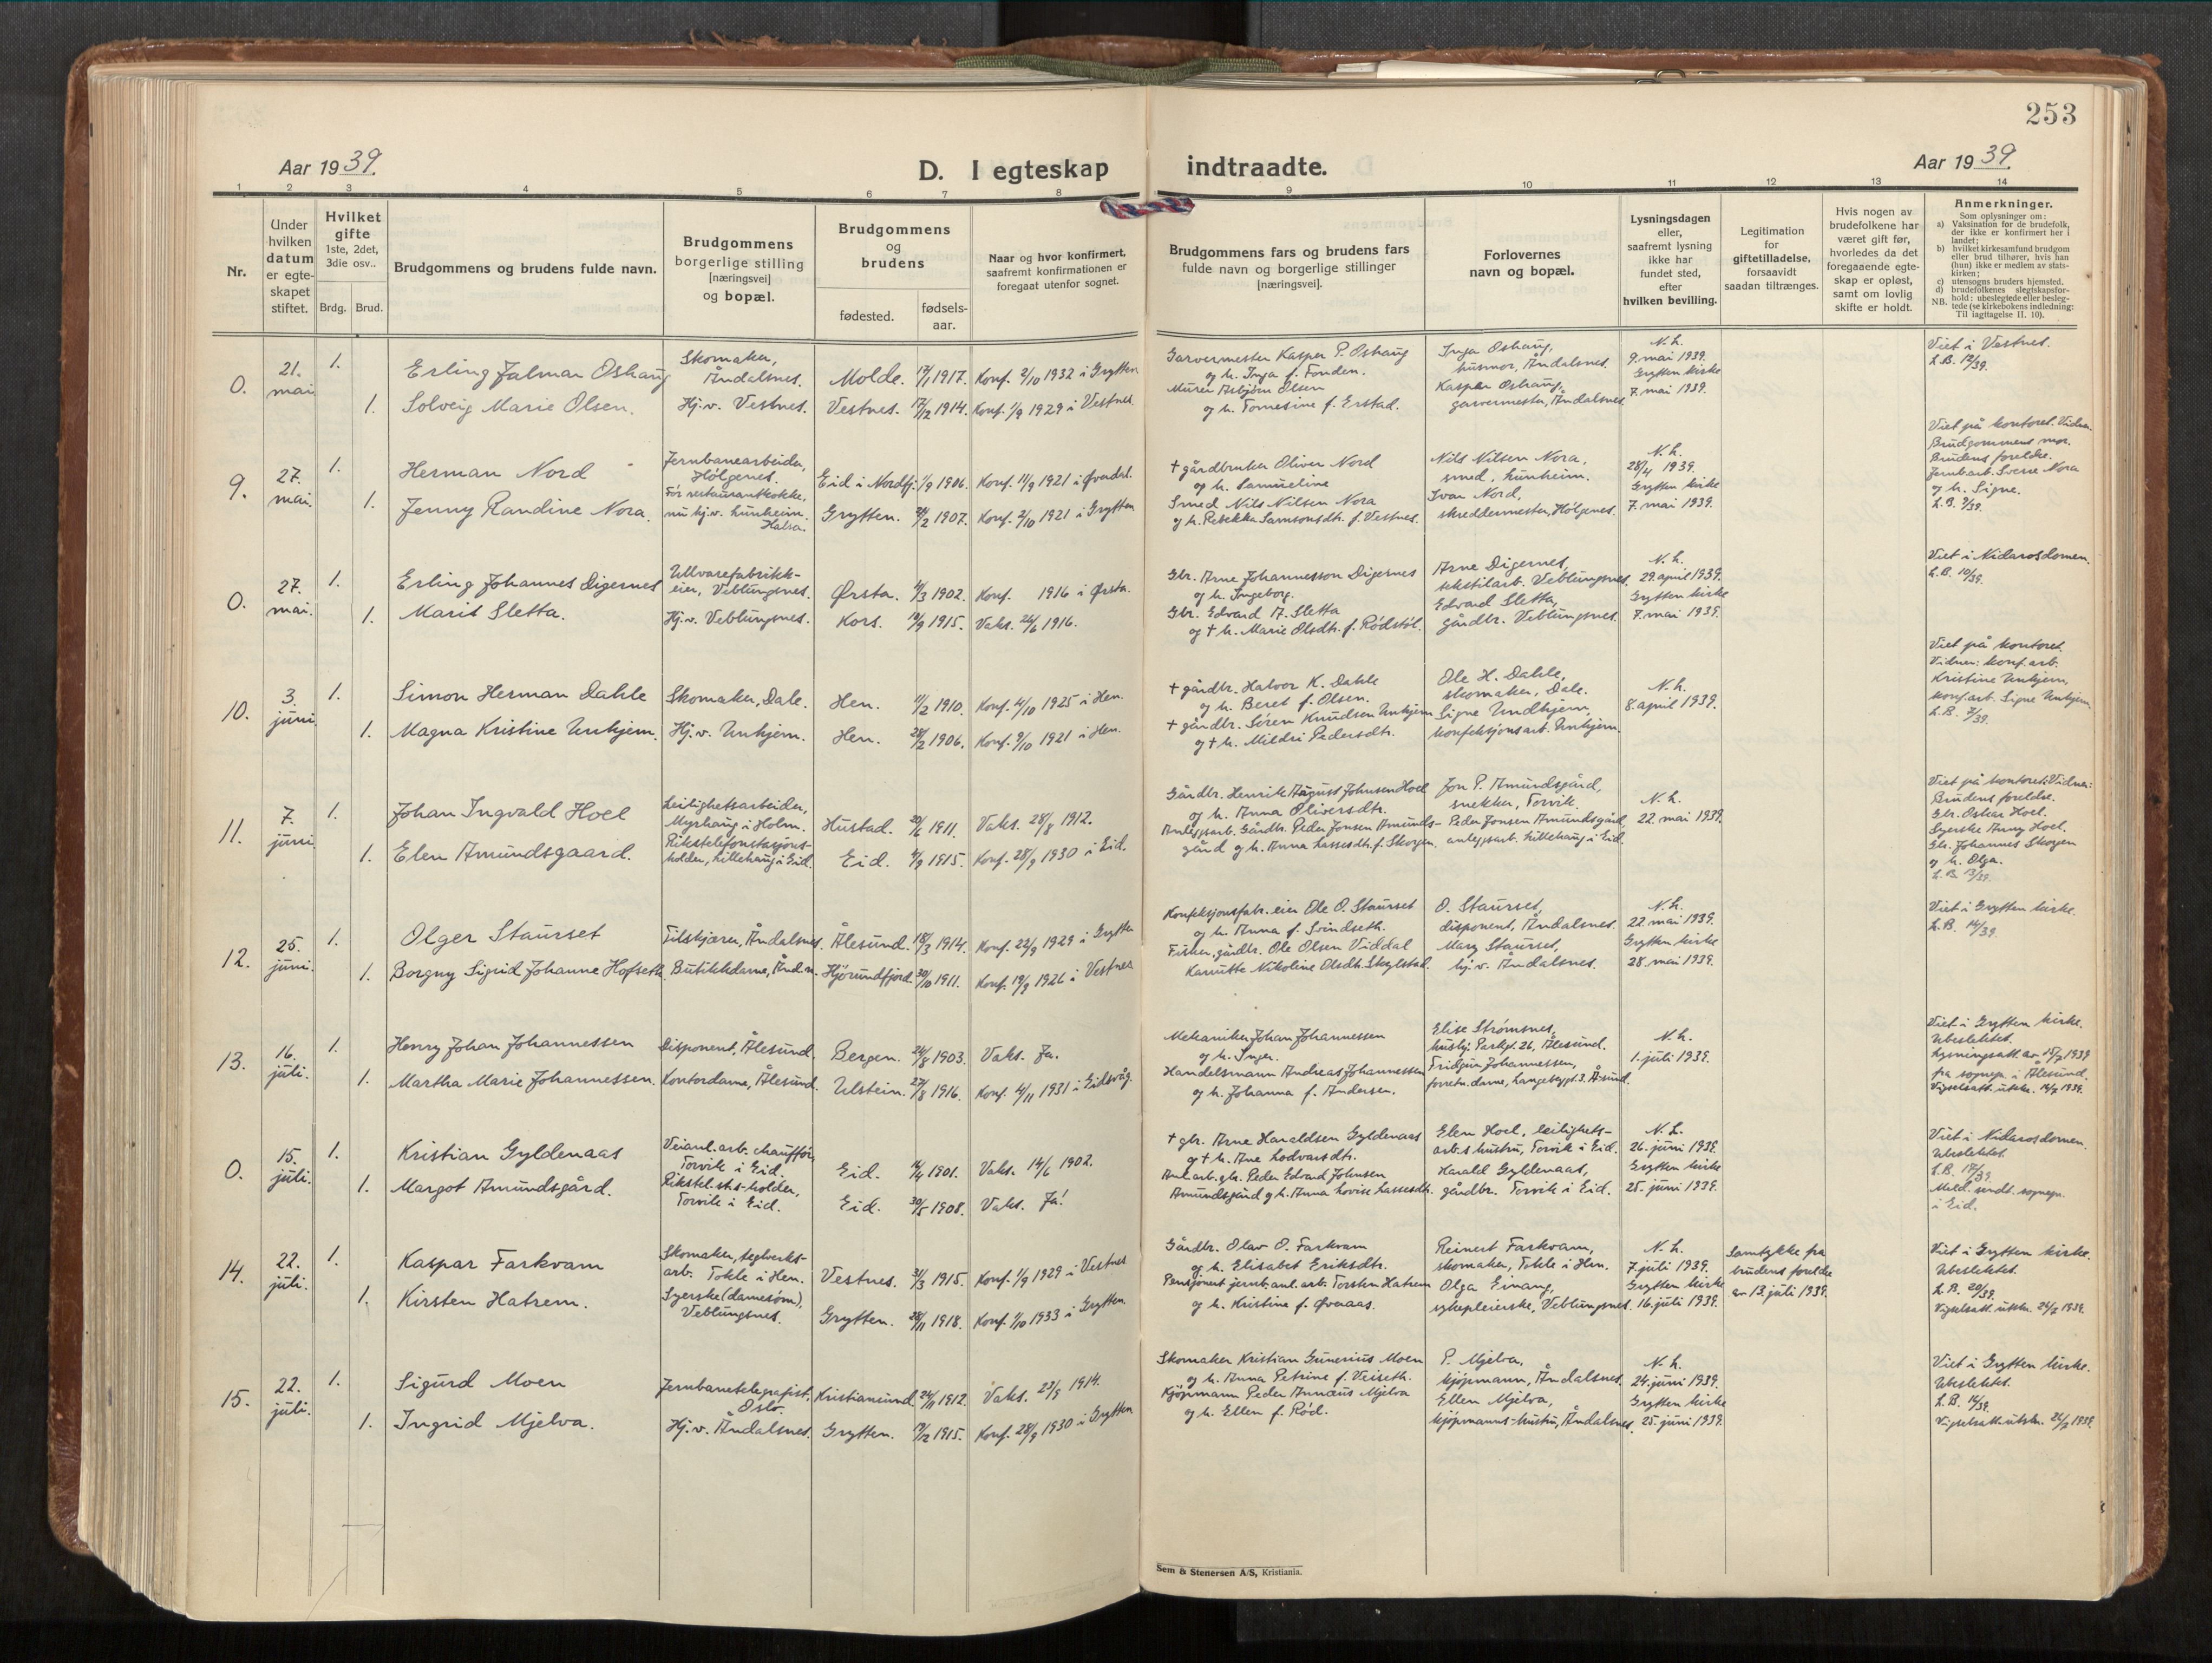 253
Aar 1939.
D. I egteskap indtraadte.
Aar 1939.
1 2 3 4 5 6 7 8 9 10 11 12 13 14
Nr.
Under hvilken datum er egte-skapet stiftet.
Hvilket gifte 1ste, 2det, 3die osv..
Brdg. Brud.
Brudgommens og brudens fulde navn.
Brudgommens borgerlige stilling [næringsvei] og bopæl.
Brudgommens og brudens
fødested.
fødsels-aar.
Naar og hvor konfirmert, saafremt konfirmationen er foregaat utenfor sognet.
Brudgommens fars og brudens fars fulde navn og borgerlige stillinger [næringsvei].
Forlovernes navn og bopæl.
Lysningsdagen eller, saafremt lysning ikke har fundet sted, efter hvilken bevilling.
Legitimation for giftetilladelse, forsaavidt saadan tiltrænges.
Hvis nogen av brudefolkene har været gift før, hvorledes da det foregaaende egte-skap er opløst, samt om lovlig skifte er holdt.
Anmerkninger.
Som oplysninger om:
a) Vaksination for de brudefolk, der ikke er konfirmert her i landet;
b) hvilket kirkesamfund brudgom eller brud tilhører, hvis han (hun) ikke er medlem av stats-kirken;
c) utensogns bruders hjemsted.
d) brudefolkenes slegtskapsfor-hold: ubeslegtede eller besleg-tede (se kirkebokens indledning: Til iagttagelse II. 10).
NB.
0. 21. mai 1. Erling Jalmar Oshaug Skomaker, Åndalsnes. Molde. 17/1 1917. Konf. 2/10 1932 i Grytten
1. Solveig Marie Olsen. Hj.v. Vestnes. Vestnes. 17/2 1914. Konf. 1/9 1929 i Vestnes
Garvermester Kasper P. Oshaug
og h. Inga f. Fonden.
Murer Asbjørn Olsen
og h. Tomesine f. Erstad.
Inga Oshaug,
husmor, Åndalsnes.
Kasper Oshaug,
garvermester, Åndalsnes.
N. h.
9. mai 1939.
Grytten kirke
7. mai 1939.
Viet i Vestnes.
L.B. 12/39.
9. 27. mai 1. Herman Nord Jernbanearbeider, Hølgenes. Eid i Nordfj. 1/9 1906. Konf. 11/9 1921 i Øvredal.
1. Jenny Randine Nora. Før restaurantkokke, nu hj.v. Hunheim. Halsa. Grytten. 2/2 1907. Konf. 2/10 1921 i Grytten
+ gårdbruker Oliver Nord
og h. Samueline
Smed Nils Nilsen Nora
og h. Rebekka Samsonsdtr. f. Vestnes.
Nils Nilsen Nora,
smed, Hunheim.
Ivar Nord,
skreddermester, Hølgenes.
N. h.
28/4 1939.
Grytten kirke
7. mai 1939.
Viet på kontoret. Vidner:
Brudgommens mor.
Brudens foreldre.
Jernb.arb. Sverre Nora
og h. Signe.
L.B. 9/39.
0. 27. mai. 1. Erling Johannes Digernes Ullvarefabrikk-eier, Veblungsnes. Ørsta. 4/3 1902. Konf. 1916 i Ørsta.
1. Marit Sletta. Hj.v. Veblungsnes. Kors. 19/9 1915. Vaks. 26/6 1916.
Gbr. Arne Johannesson Digernes
og h. Ingeborg.
Gbr. Edvard A. Sletta
og + h. Marie Olsdtr. f. Rødstøl.
Arne Digernes,
tekstilarb. Veblungsnes.
Edvard Sletta,
gårdbr. Veblungsnes.
N. h.
29. april 1939.
Grytten kirke
7. mai 1939.
Viet i Nidarosdomen.
L.B. 10/39.
10. 3. juni. 1. Simon Herman Dahle Skomaker, Dale. Hen. 11/2 1910. Konf. 4/10 1925 i Hen.
1. Magna Kristine Unhjem. Hj.v. Unhjem. Hen. 28/2 1906. Konf. 9/10 1921 i Hen.
+ gårdbr. Halvor K. Dahle
og h. Beret f. Olsen.
+ gårdbr. Søren Knudsen Unhjem
og + h. Mildri Pedersdtr.
Ole H. Dahle,
skomaker, Dale.
Signe Undhjem,
konfeksjonsarb. Unhjem.
N. h.
8. april 1939.
Viet på kontoret.
Vidner: konf.arb.
Kristine Unhjem,
konf.arb. Signe Unhjem.
L.B. 7/39.
11. 7. juni 1. Johan Ingvald Hoel Leilighetsarbeider, Myrhaug i Holm. Hustad. 20/6 1911. Vaks. 28/8 1912.
1. Elen Amundsgaard. Rikstelefonstasjons-holder, Lillehaug i Eid. Eid. 4/9 1915. Konf. 28/9 1930 i Eid.
Gårdbr. Henrik August Johnsen Hoel
og h. Anna Oliversdtr.
Anleggsarb. Gårdbr. Peder Jonsen Amunds-
gård og h. Anna Lassesdtr. f. Skorgen.
Jon P. Amundsgård,
snekker, Torvik.
Peder Jonsen Amundsgård,
anleggsarb. Lillehaug i Eid.
N. h.
22. mai 1939.
Viet på kontoret. Vidner:
Brudens foreldre.
Gbr. Oskar Hoel.
Syerske Anny Hoel.
Gbr. Johannes Skorgen
og h. Olga.
L.B. 13/39.
12. 25. juni. 1. Olger Staurset Tilskjærer, Åndalsnes. Ålesund. 18/3 1914. Konf. 22/9 1929 i Grytten
1. Borgny Sigrid Johanne Hofseth. Butikkdame, Ånd.n. Hjørundfjord. 30/10 1911. Konf. 19/9 1926 i Vestnes
Konfeksjonsfabr.eier Ole O. Staurset
og h. Anna f. Svindseth.
Fisker, gårdbr. Ole Olsen Viddal
Kanutte Nikoline Olsdtr. Skylstad.
O. Staurset,
disponent, Åndalsnes.
Mary Staurset,
hj.v. Åndalsnes.
N. h.
22. mai 1939.
Grytten kirke
28. mai 1939.
Viet i Grytten kirke.
L.B. 14/39.
13. 16. juli. 1. Henry Johan Johannessen Disponent, Ålesund. Bergen. 24/8 1903. Vaks. Ja.
1. Martha Marie Johannessen. Kontordame, Ålesund. Ulstein. 27/8 1916. Konf. 4/11 1931 i Eidsvåg.
Mekaniker Johan Johannessen
og h. Inga.
Handelsmann Andreas Johannessen
og h. Johanna f. Andersen.
Elise Strømsnes,
hushj. Parkgt. 26, Ålesund.
Fridgun Johannessen,
forretn.dame, Langebrygt. 3. Å.sund.
N. h.
1. juli 1939.
Viet i Grytten kirke.
Ubeslektet.
Lysningsatt. av 15/7 1939
fra sognepr. i Ålesund.
Vigselsatt. utskr. 16/7 1939.
0. 15. juli. 1. Kristian Gyldenaas Veianl.arb. chauffør, Torvik i Eid. Eid. 16/4 1901. Vaks. 14/6 1902.
1. Margot Amundsgård. Rikstel.st.s-holder, Torvik i Eid. Eid. 30/5 1908. Vaks. Ja!
+ gbr. Arne Haraldsen Gyldenaas
og + h. Ane Lodvarsdtr.
Anl.arb. gbr. Peder Edvard Johnsen
Amundsgård og h. Anna Lovise Lassesdtr.
Elen Hoel, leilighets-
arb.s hustru, Torvik i Eid.
Harald Gyldenaas,
gårdbr. Torvik i Eid.
N. h.
26. juni 1939.
Grytten kirke
25. juni 1939.
Viet i Nidarosdomen.
Ubeslektet.
L.B. 17/39.
Meld. sendt sognepr.
i Eid.
14. 22. juli. 1. Kaspar Farkvam Skomaker, teglverks-arb. Tokle i Hen. Vestnes. 31/3 1915. Konf. 1/9 1929 i Vestnes
1. Kirsten Hatrem. Syerske (damesøm), Veblungsnes. Grytten. 28/11 1918. Konf. 1/10 1933 i Grytten
Gårdbr. Olav O. Farkvam
og h. Elisabet Eriksdtr.
Pensjonert jernb.anl.arb. Torsten Hatrem
og h. Kristine f. Øvraas.
Reinert Farkvam,
skomaker, Tokle i Hen.
Olga Einang,
sykepleierske, Veblungsnes.
N. h.
7. juli 1939.
Grytten kirke
16. juli 1939.
Samtykke fra
brudens foreldre
av 13. juli 1939.
Viet i Grytten kirke.
Ubeslektet.
L.B. 20/39.
Vigselsatt. utskr. 24/7 1939.
15. 22. juli. 1. Sigurd Moen Jernbanetelegrafist, Oslo. Kristiansund. 24/11 1912. Vaks. 23/9 1914.
1. Ingrid Mjelva. Hj.v. Åndalsnes. Grytten. 19/2 1915. Konf. 28/9 1930 i Grytten
Skomaker Kristian Gunerius Moen
og h. Anna Petrine f. Veiseth.
Kjøpmann Peder Annæus Mjelva
og h. Ellen f. Rød.
P. Mjelva,
kjøpmann, Åndalsnes.
Ellen Mjelva,
kjøpmanns-hustru, Åndalsnes.
N. h.
24. juni 1939.
Grytten kirke
25. juni 1939.
Viet i Grytten kirke.
Ubeslektet.
L.B. 16/39.
Vigselsatt. utskr. 24/7 1939.
Sem & Stenersen A/S, Kristiania.